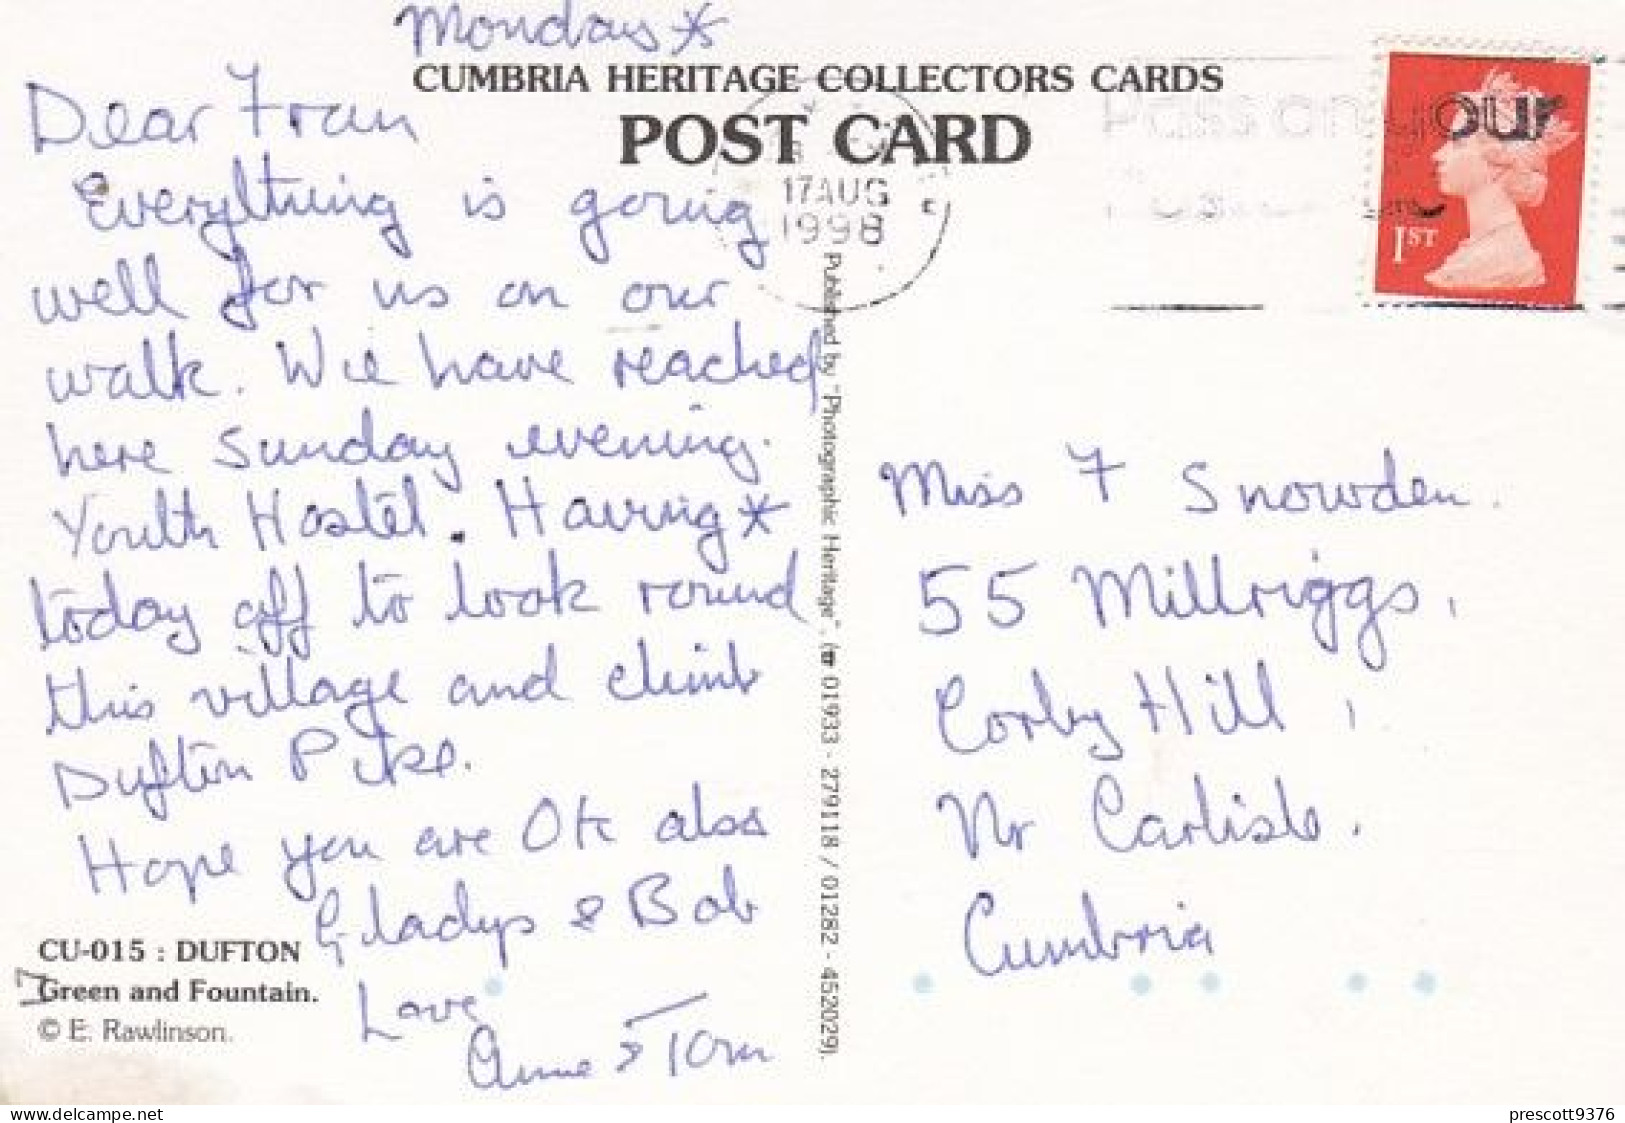 Monday*
CUMBRIA HERITAGE COLLECTORS CARDS
POST CARD
Dear Fran
Everything is going
well for us on our
walk. We have reached
here Sunday evening.
Youth Hostel. Having *
today off to look round
this village and climb
Dufton Pike.
Hope you are OK also
Gladys & Bob
Love
Anne & Tom
CU-015 : DUFTON
Green and Fountain.
© E. Rawlinson.
Published by "Photographic Heritage". (☎ 01933 - 279118 / 01282 - 452029).
17 AUG
1998
Pass on your
1ST
Miss F Snowden.
55 Millriggs,
Corby Hill,
Nr Carlisle.
Cumbria
delcampe.net
prescott9376